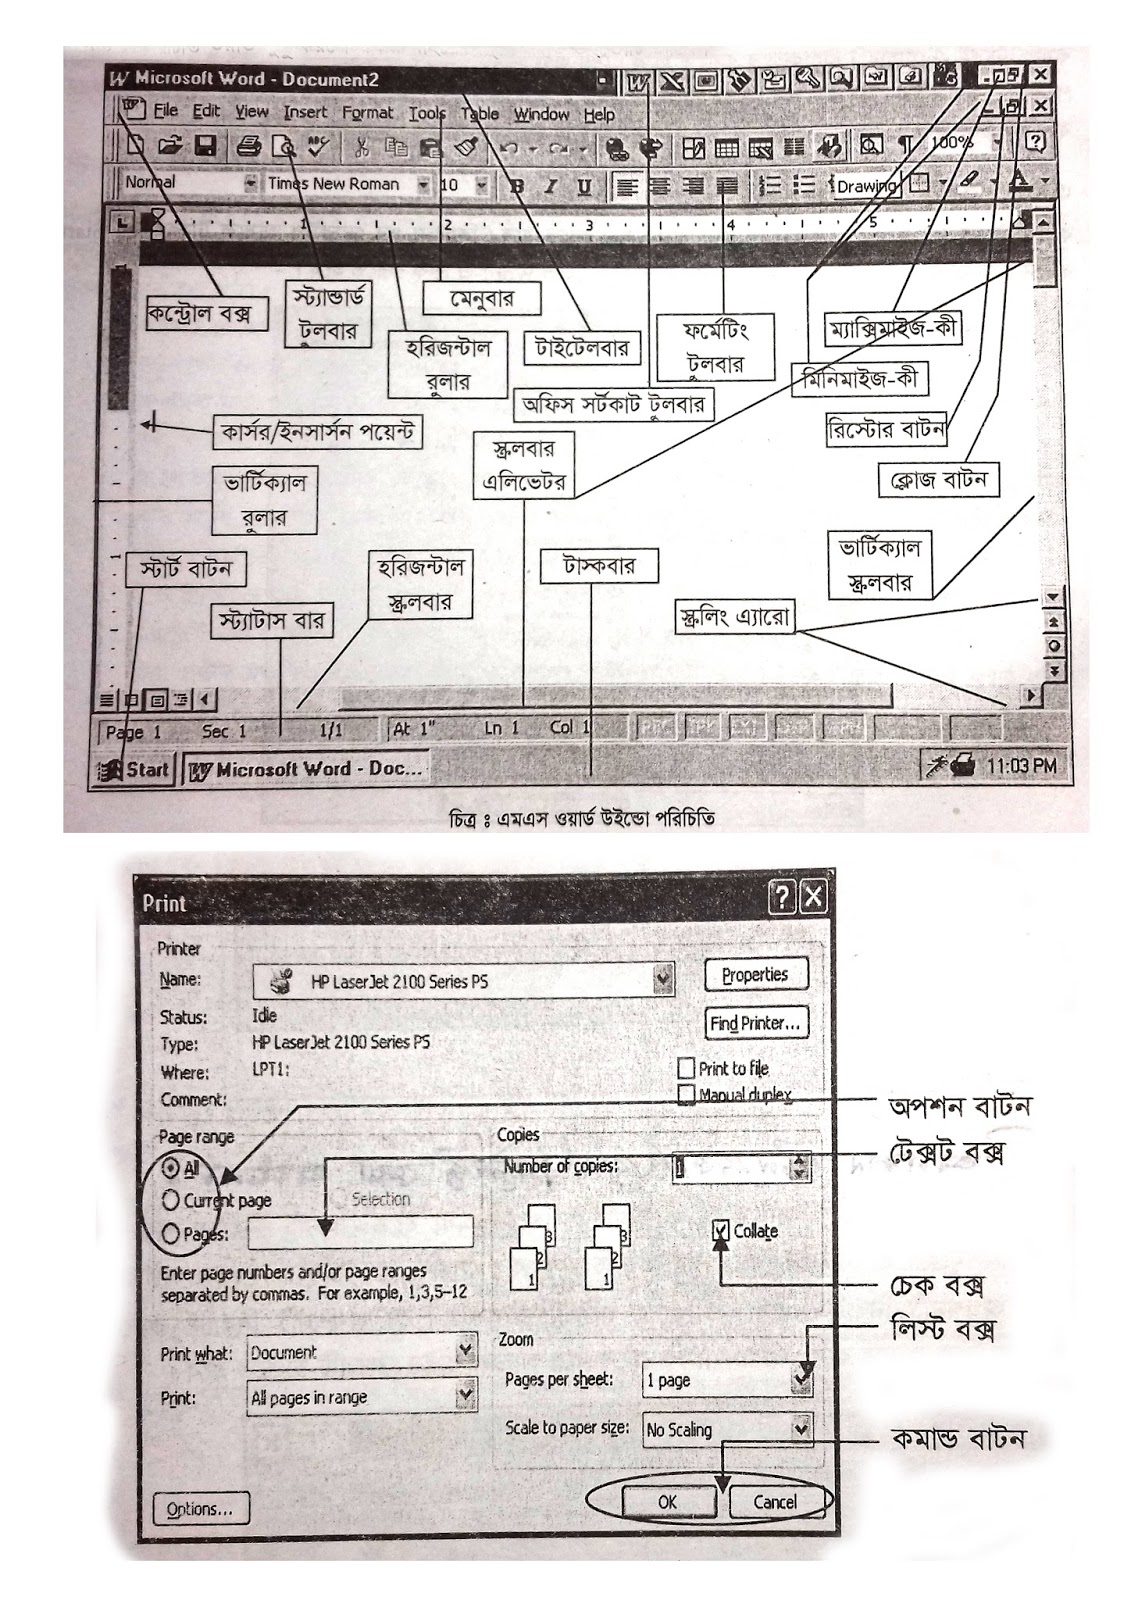 Microsoft Word - Document2
File Edit View Insert Format Tools Table Window Help
ABC 100%
Normal Times New Roman 10 B I U Drawing A
L 1 2 3 4 5
কন্ট্রোল বক্স
স্ট্যান্ডার্ড
টুলবার
মেনুবার
হরিজন্টাল
রুলার
টাইটেলবার
ফর্মেটিং
টুলবার
ম্যাক্সিমাইজ-কী
মিনিমাইজ-কী
অফিস সর্টকাট টুলবার
কার্সর/ইনসার্সন পয়েন্ট
স্ক্রলবার
এলিভেটর
রিস্টোর বাটন
ক্লোজ বাটন
ভার্টিক্যাল
রুলার
স্টার্ট বাটন
হরিজন্টাল
স্ক্রলবার
টাস্কবার
ভার্টিক্যাল
স্ক্রলবার
স্ট্যাটাস বার
স্ক্রলিং এ্যারো
Page 1 Sec 1 1/1 At 1" Ln 1 Col 1
Start Microsoft Word - Doc... 11:03 PM
চিত্র ঃ এমএস ওয়ার্ড উইন্ডো পরিচিতি
Print
Printer
Name: HP LaserJet 2100 Series PS Properties
Status: Idle Find Printer...
Type: HP LaserJet 2100 Series PS
Where: LPT1: Print to file
Comment: Manual duplex
অপশন বাটন
Page range Copies
টেক্সট বক্স
All Number of copies: 1
Current page Selection
Pages: Collate
1 2 3 1 2 3
Enter page numbers and/or page ranges
separated by commas. For example, 1,3,5–12
চেক বক্স
লিস্ট বক্স
Print what: Document Zoom
Pages per sheet: 1 page
Print: All pages in range
Scale to paper size: No Scaling
কমান্ড বাটন
Options... OK Cancel